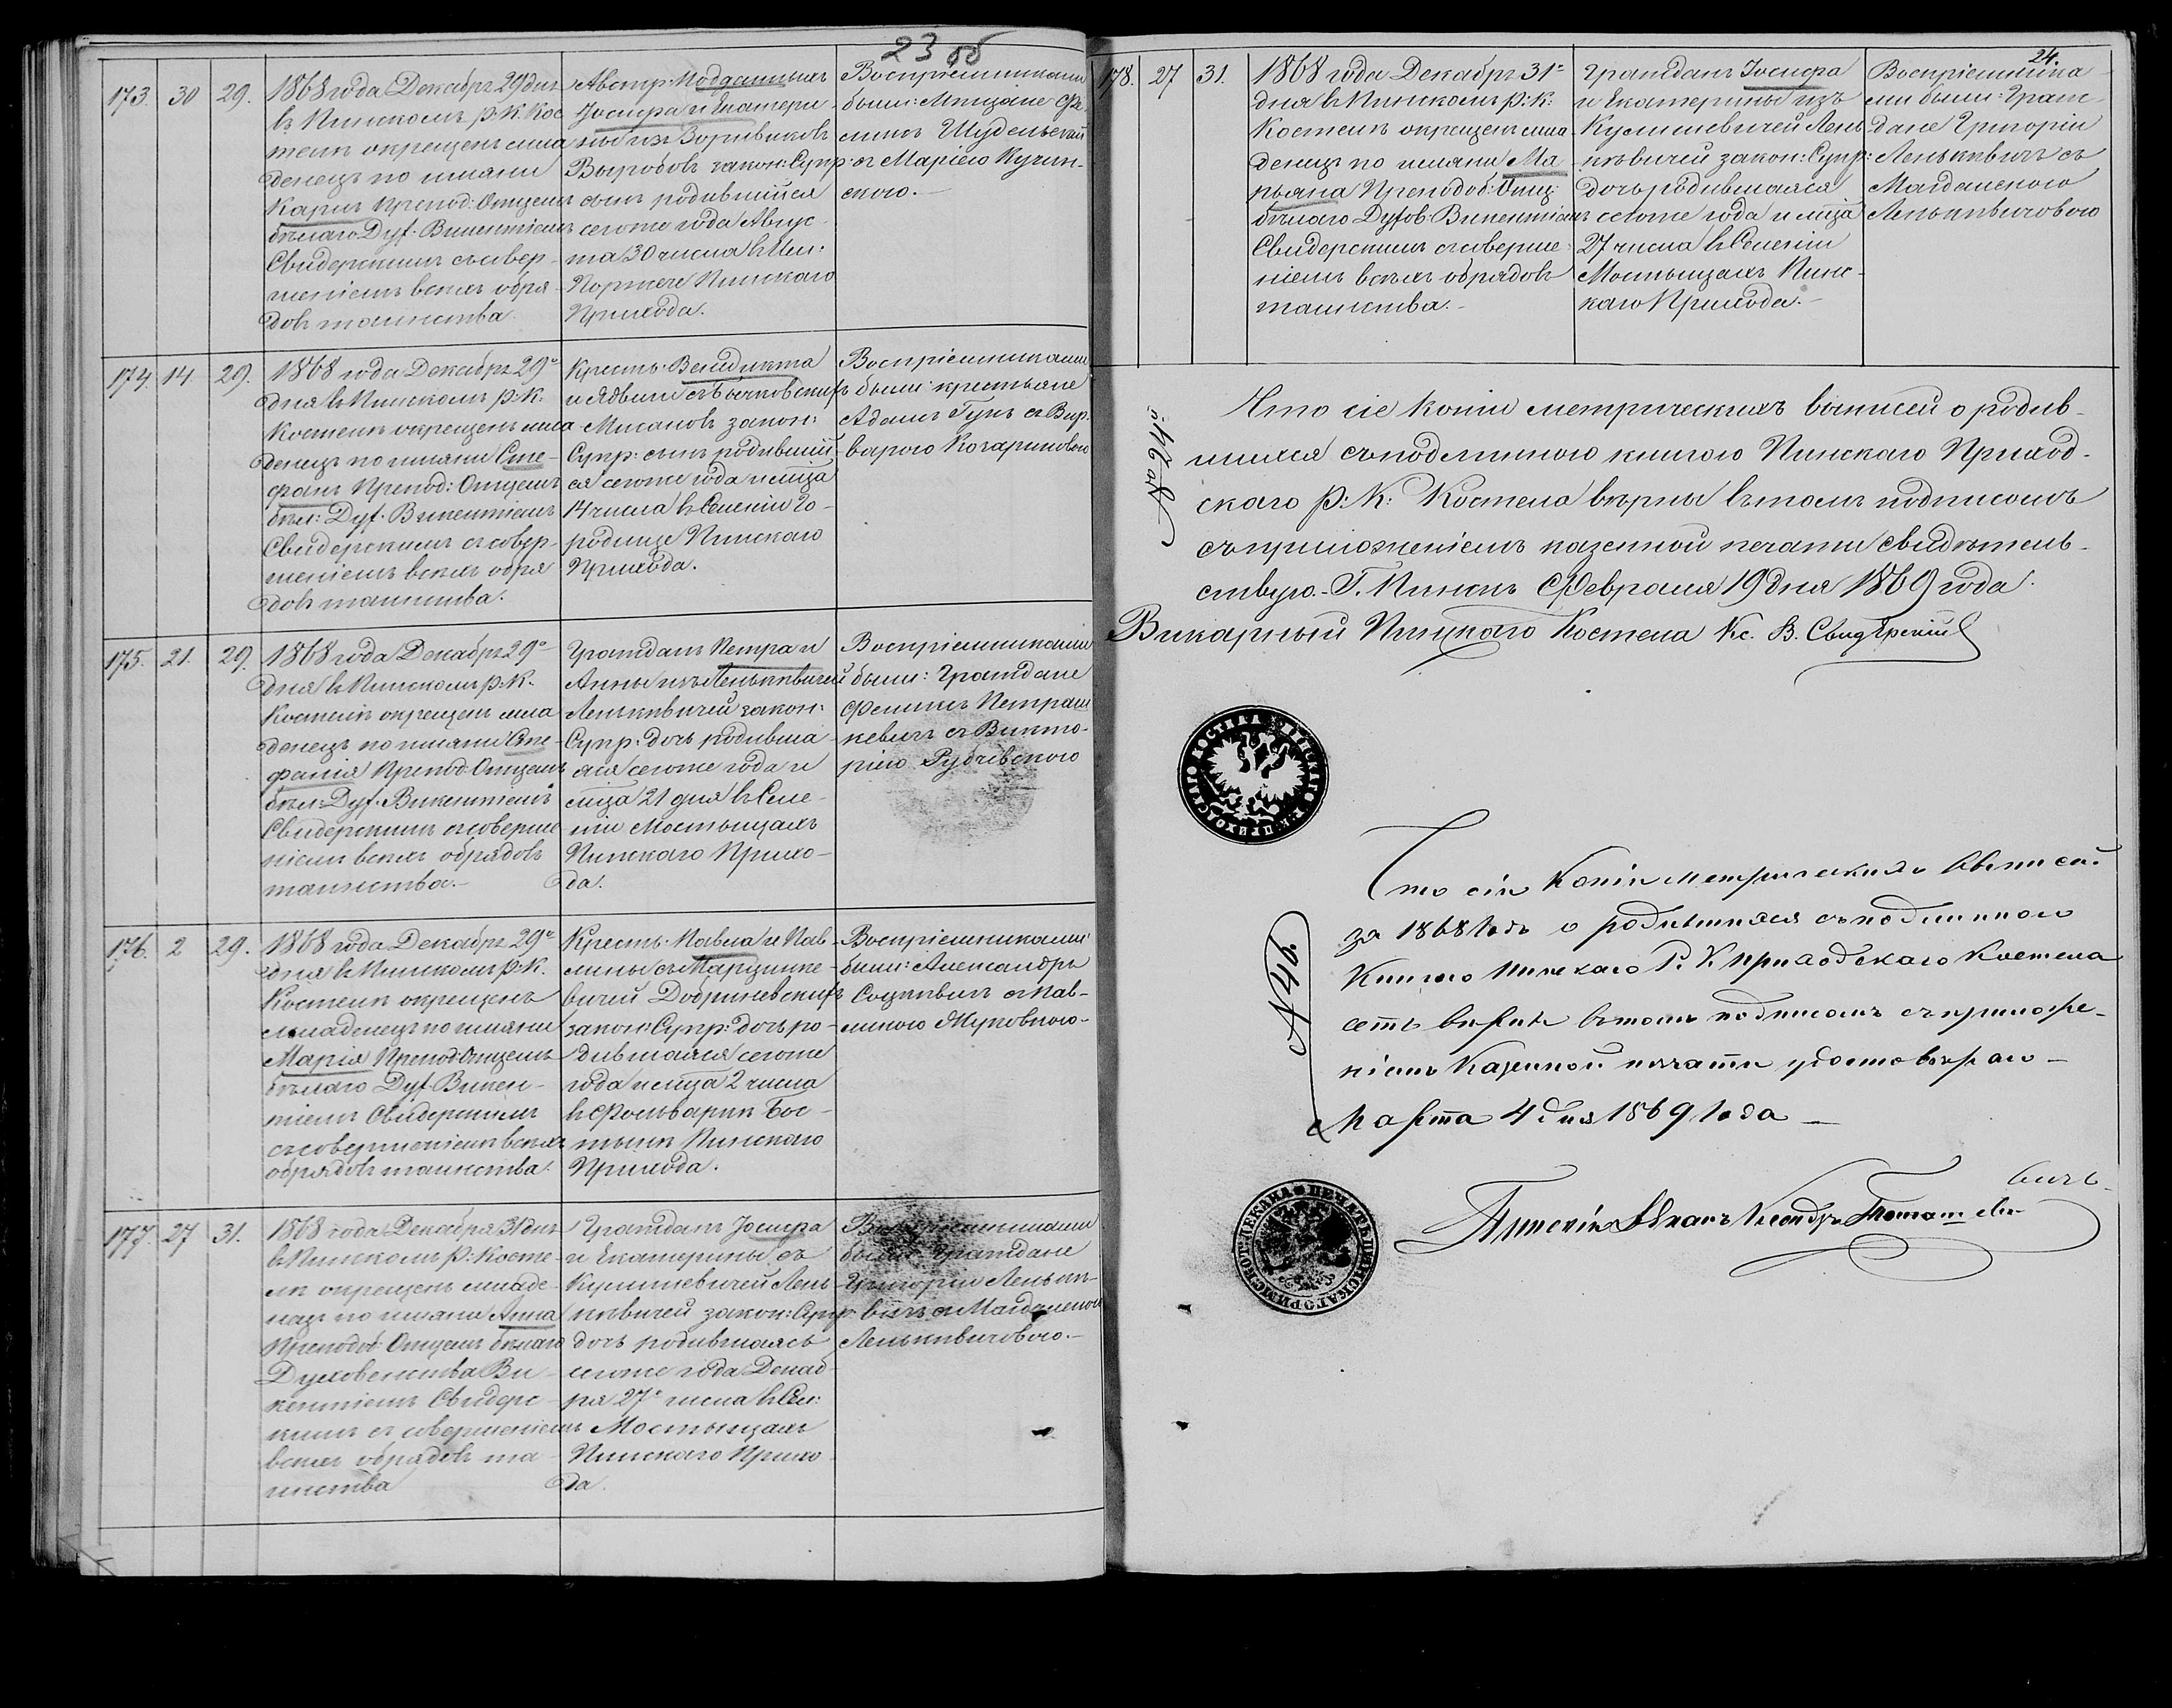 23 об
173. 30 29.
1868 года Декабря 29 дня
въ Пинскомъ Р. К. Кос
телѣ окрещенъ мла
денецъ по имяни
Каролъ Препод: Отцемъ
бѣлаго Дух. Викентіемъ
Свидерскимъ съ совер-
шеніемъ всѣхъ обря-
довъ таинства.
Австр. Подданныхъ
Іосифа и Екатери-
ны изъ
закон: Супр:
сынъ родившійся
сегоже года Авгус-
та 30 числа въ Им:
Пинскаго
Прихода.
Воспріемниками
были: Мѣщане Фе
ликъ
съ Маріею Кучин-
скою.
174. 14 29.
1868 года Декабря 29º
дня въ Пинскомъ Р: К.
Костелѣ окрещенъ мла
денецъ по имяни Сте-
фанъ Препод: Отцемъ
бѣл: Дух. Викентіемъ
Свидерскимъ съ совер-
шеніемъ всѣхъ обря
довъ таинства.
Кресть. Венедикта
и Ядвиги съ Бычковскихъ
Мисановъ закон:
Супр: сынъ родившій
ся сегоже года и мѣца
14 числа въ Селеніи Го-
родище Пинскаго
Прихода.
Воспріемниками
были: крестьяне
Адамъ Гукъ съ Вар
варою
175. 21. 29.
1868 года Декабря 29º
дня въ Пинскомъ Р. К.
Костелѣ окрещенъ мла
денецъ по имяни Сте-
фанія Препод: Отцемъ
бѣл: Дух. Викентіемъ
Свидерскимъ съ соверше
ніемъ всѣхъ обрядовъ
таинства.-
Граждан Петра и
Анны изъ Ленькевичей
Ленькевичей закон:
Супр: дочь родивша-
яся сегоже года и
мѣца 21 дня въ Селе-
ніи Мостыщахъ
Пинскаго Прихо-
да.
Воспріемниками
были: Граждане
Феликсъ Петраш
кевичъ съ Викто-
ріею
176. 2 29.
1868 года Декабря 29º
дня въ Пинскомъ Р: К.
Костелѣ окрещенъ
младенецъ по имяни
Марія Препод: Отцемъ
бѣлаго Дух. Викен-
тіемъ Свидерскимъ
съ совершеніемъ всѣхъ
обрядовъ таинства.
Кресть. Павла и Пав-
лины съ Марцинке-
вичей Добриневскихъ
закон: Супр: дочь ро-
дившаяся сегоже
года и мѣца 2 числа
въ Фольваркѣ Бос-
тынѣ Пинскаго
Прихода.
Воспріемниками
были: Александръ
съ Пав-
линою Жуковскою-
177. 27 31.
1868 года Декабря 31 дня
въ Пинскомъ Р: Косте-
лѣ окрещенъ младе-
нецъ по имяни Анна
Преподоб: Отцемъ бѣлаго
Духовенства Ви-
кентіемъ Свидерс-
кимъ съ совершеніемъ
всѣхъ обрядовъ та-
инства
Граждан Іосифа
и Екатерины съ
Кулишевичей Лень-
кѣвичей закон: Супр:
дочь родившаясь
сегоже года Декаб-
ря 27º числа въ Сел:
Мостыщахъ
Пинскаго Прихо
да.
Воспріемниками
были: Граждане
Григорій Ленькѣ-
вичъ съ Магдаленою
Ленькѣвичовою.-
24.
178. 27 31.
1868 года Декабря 31º
дня въ Пинскомъ Р: К:
Костелѣ окрещенъ мла-
денецъ по имяни Ма
рьяна Преподоб: Отц:
бѣлаго Духов: Викентіемъ
Свидерскимъ съ соверше-
ніемъ всѣхъ обрядовъ
таинства.-
Граждан Іосифа
и Екатерины изъ
Кулишевичей Лень
кѣвичей закон: Супр:
дочь родившаяся
сегоже года и мѣца
27 числа въ Селеніи
Мостыщахъ Пинс-
каго Прихода.-
Воспріемника-
ми были: Граж-
дане Григорій
Ленькѣвичъ съ
Магдаленою
Ленькѣвичовою
Что сіе копіи метрическихъ выписей о родив-
шихся съ подлинною книгою Пинскаго Приход-
скаго Р: К: Костела вѣрны въ томъ подписомъ
съ приложеніемъ казенной печати свидѣтель-
ствую.- Г. Пинскъ Февраля 19 дня 1869 года.
Викарный Пинскаго Костела Кс. В. Свидерскій
Что сіи Копіи метрическихъ выписей
за 1868 годъ о родившихся съ подлинною
Книгою Пинскаго Р. К. Приходскаго Костела
есть вѣрны въ томъ подписомъ съ приложе-
ніемъ Казенной печати удостовѣряю-
Марта 4 дня 1869 года -
№ 46.
Пинскій Деканъ Ксендзъ
вичъ